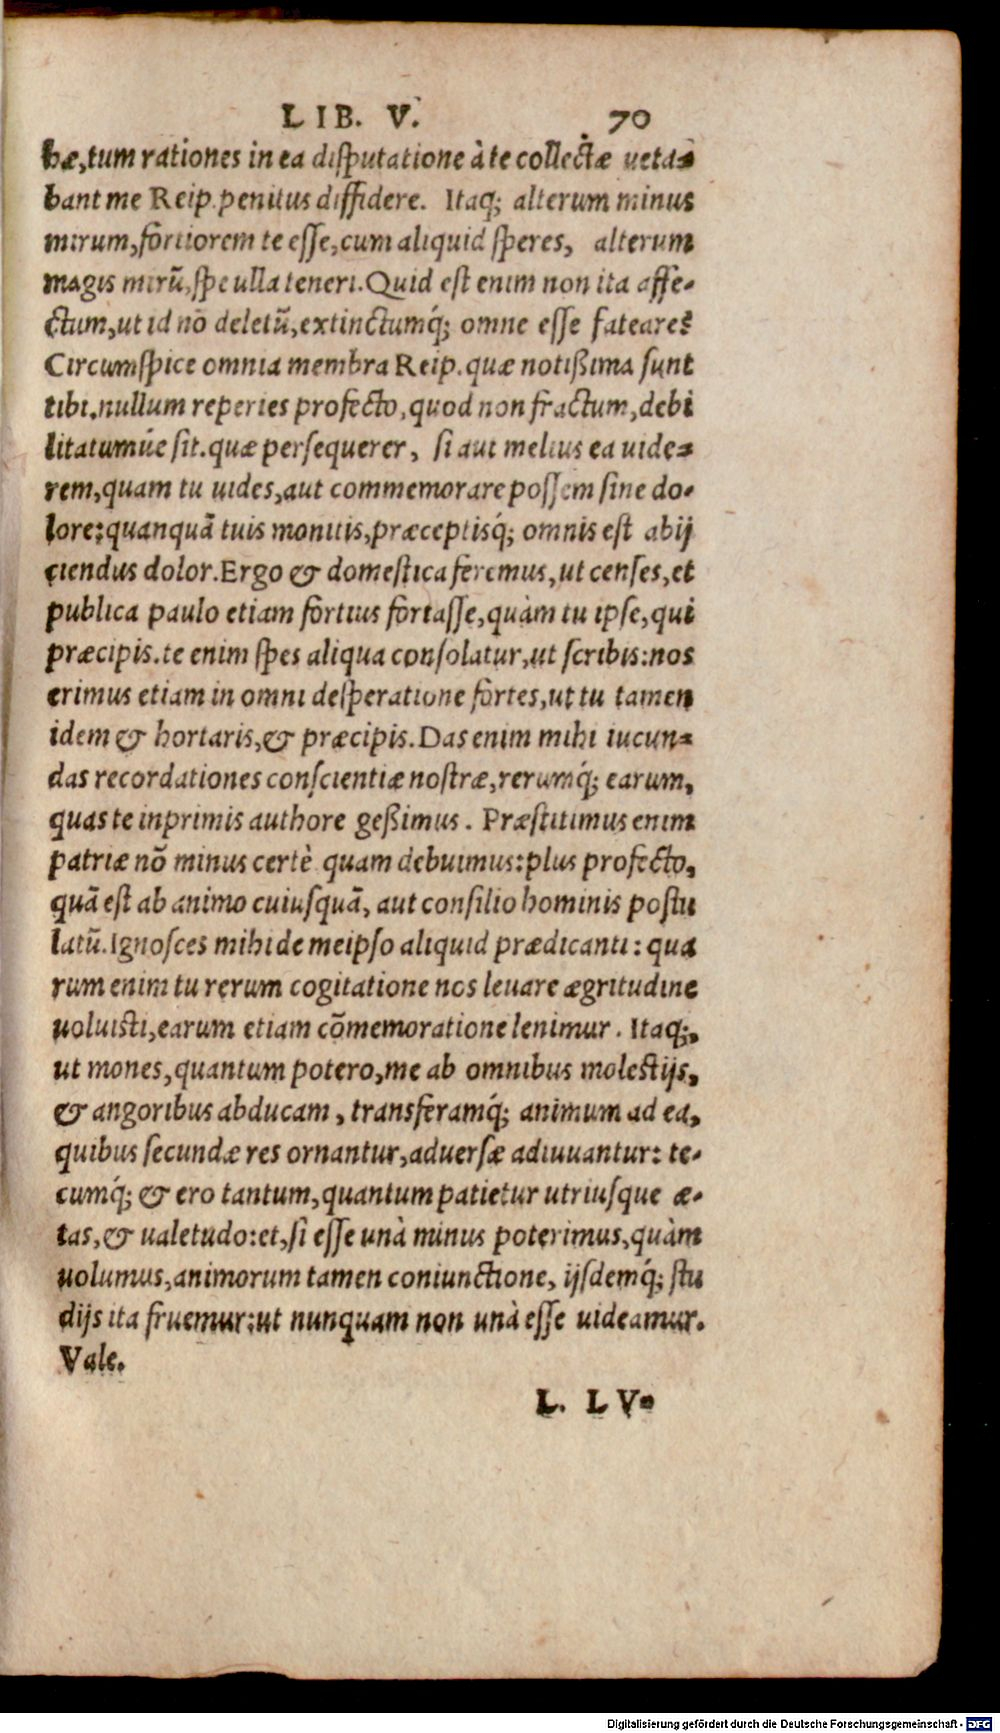 LIB. V. 70
hæ, tum rationes in ea disputatione à te collectæ ueta-
bant me Reip. penitus diffidere. Itaq; alterum minus
mirum, fortiorem te esse, cum aliquid speres, alterum
magis mirũ, spe ulla teneri. Quid est enim non ita affe-
ctum, ut id nõ deletũ, extinctumq́; omne esse fateare?
Circumspice omnia membra Reip. quæ notißima sunt
tibi. nullum reperies profecto, quod non fractum, debi
litatumúe sit. quæ persequerer, si aut melius ea uide-
rem, quam tu uides, aut commemorare possem sine do-
lore: quanquã tuis monitis, præceptisq́; omnis est abij
ciendus dolor. Ergo & domestica feremus, ut censes, et
publica paulo etiam fortius fortasse, quàm tu ipse, qui
præcipis. te enim spes aliqua consolatur, ut scribis: nos
erimus etiam in omni desperatione fortes, ut tu tamen
idem & hortaris, & præcipis. Das enim mihi iucun-
das recordationes conscientiæ nostræ, rerumq́; earum,
quas te inprimis authore geßimus. Præstitimus enim
patriæ nõ minus certè quam debuimus: plus profecto,
quã est ab animo cuiusquã, aut consilio hominis postu
latũ. Ignosces mihi de meipso aliquid prædicanti: qua
rum enim tu rerum cogitatione nos leuare ægritudine
uoluisti, earum etiam cõmemoratione lenimur. Itaq;,
ut mones, quantum potero, me ab omnibus molestijs,
& angoribus abducam, transferamq́; animum ad ea,
quibus secundæ res ornantur, aduersæ adiuuantur: te-
cumq́; & ero tantum, quantum patietur utriusque æ-
tas, & ualetudo: et, si esse unà minus poterimus, quàm
uolumus, animorum tamen coniunctione, ijsdemq́; stu
dijs ita fruemur: ut nunquam non unà esse uideamur.
Vale.
L. LV-
Digitalisierung gefördert durch die Deutsche Forschungsgemeinschaft - DFG